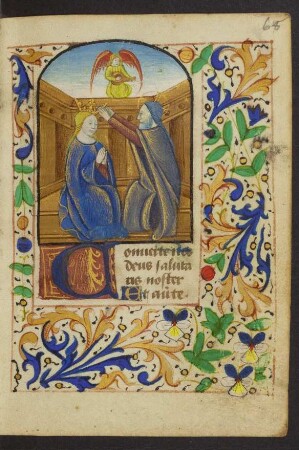 68
Conuerte nos
deus saluta
ris noster
Et aute